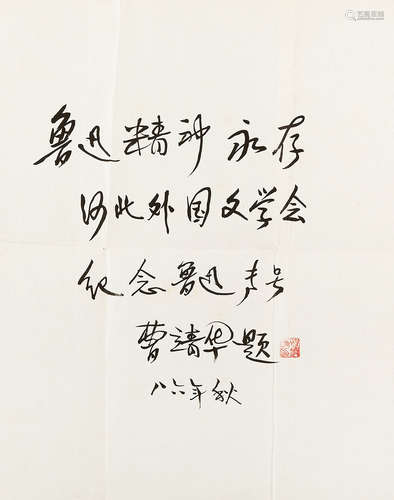 鲁迅精神永存
河北外国文学会
纪念鲁迅专号
曹靖华题
八六年秋